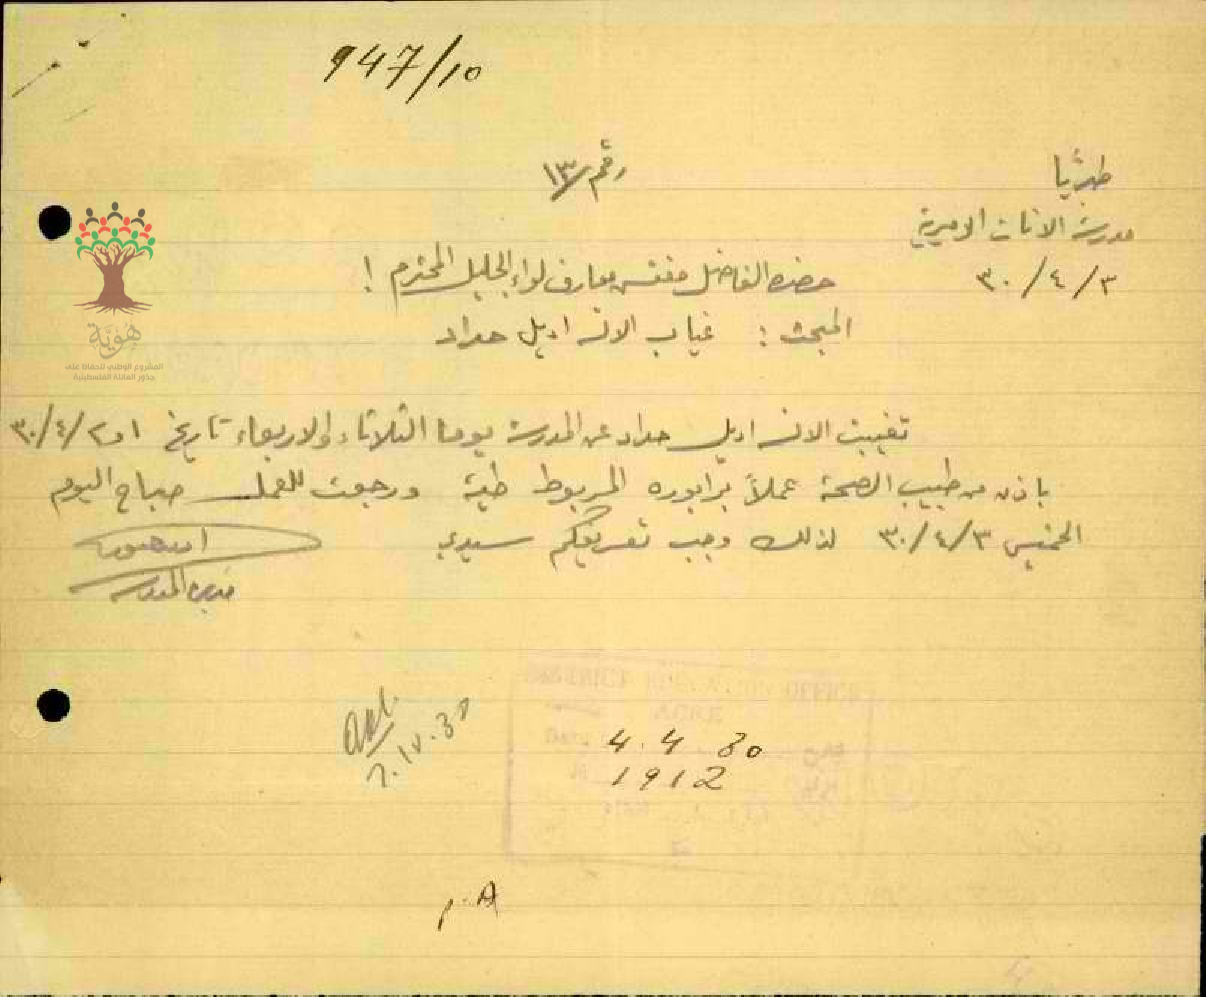 947/10
رقم ١٣
طبريّا
مدرسة الاناث الاميرية
٣٠/٤/٣
حضرة الفاضل مفتش معارف لواء الجليل المحترم !
المبحث : غياب الانسه اديل حداد
تغيبت الانسه اديل حداد عن المدرسة يوما الثلاثاء والاربعاء تاريخ ١ و٢/٤/٣٠
باذن من طبيب الصحة عملاً برابوره المربوط طيه ورجعت للعمل صباح اليوم
الخميس ٣/٤/٣٠ لذلك وجب تعريفكم سيدي
مديرة المدرسة
DISTRICT EDUCATION OFFICE
ACRE
Date
4. 4 30
1912
7. IV. 30
P.A
هُويّة
المشروع الوطني للحفاظ على
جذور العائلة الفلسطينية